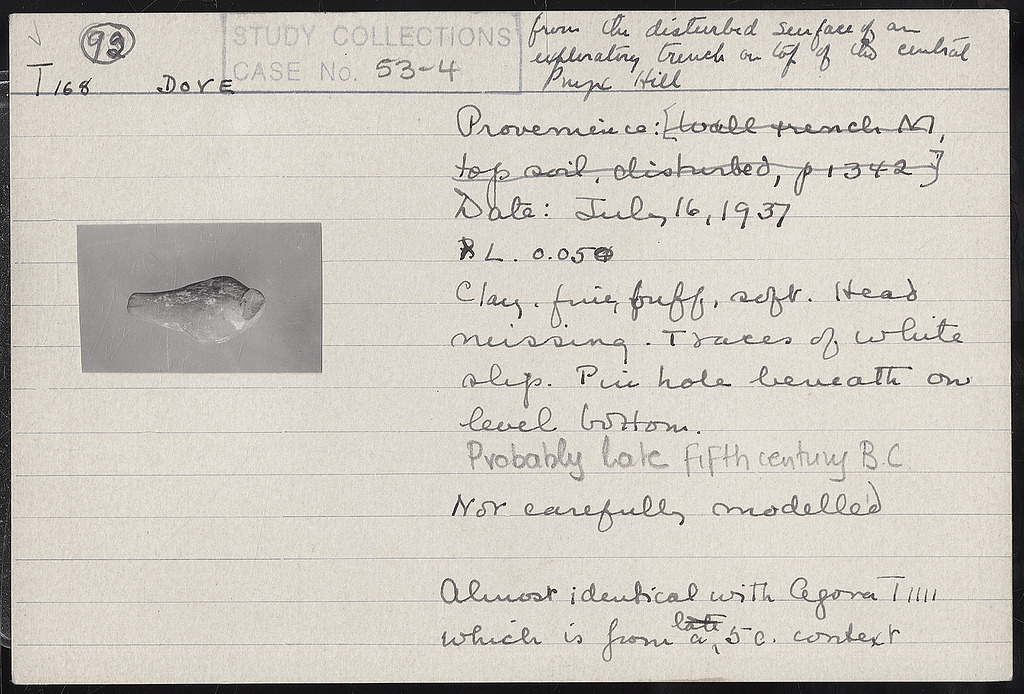 92
STUDY COLLECTIONS
CASE No. 53-4
T 168 DOVE
from the disturbed surface of an
exploratory trench on top of the central
Pnyx Hill
Provenience: [Wall trench M,
top soil, disturbed, p 1342]
Date: July 16, 1937
L. 0.05
Clay. fine, buff, soft. Head
missing. Traces of white
slip. Pin hole beneath on
level bottom.
Probably late fifth century B.C
Not carefully modelled
Almost identical with Agora T 1111
which is from a late 5 c. context